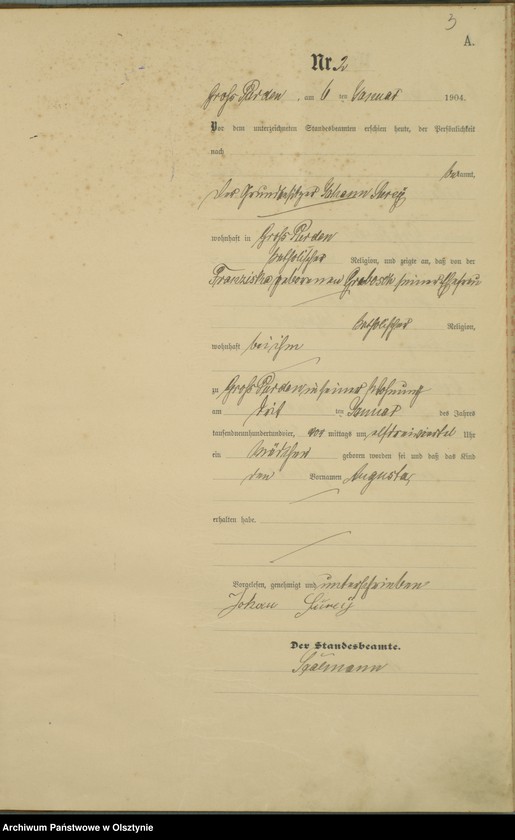 3
A.
Nr. 2
Groß Purden, am 6 ten Januar 1904.
Vor dem unterzeichneten Standesbeamten erschien heute, der Persönlichkeit
nach
bekannt,
der Grundbesitzer Johann
wohnhaft in Groß Purden
katholischer Religion, und zeigte an, daß von der
Franziska, geborenen seiner Ehefrau
katholischer Religion,
wohnhaft bei ihm
zu Groß Purden in seiner Wohnung
am drit ten Januar des Jahres
tausendneunhundertundvier, vor mittags um elfdreiviertel Uhr
ein Mädchen geboren worden sei und daß das Kind
den Vornamen Augusta,
erhalten habe.
Vorgelesen, genehmigt und unterschrieben
Johan
Der Standesbeamte.
Archiwum Państwowe w Olsztynie